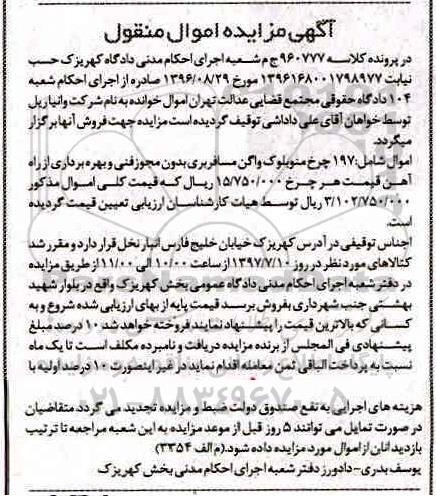 آگهی مزایده اموال منقول
در پرونده کلاسه ۹۶۰۷۷۷ ج م شعبه اجرای احکام مدنی دادگاه کهریزک حسب
نیابت ۱۳۹۶۱۶۸۰۰۱۷۹۸۹۷۷ مورخ ۱۳۹۶/۰۸/۲۹ صادره از اجرای احکام شعبه
۱۰۴ دادگاه حقوقی مجتمع قضایی عدالت تهران اموال خوانده به نام شرکت وانیاریل
توسط خواهان آقای علی داداشی توقیف گردیده است مزایده جهت فروش آنها برگزار
میگردد.
اموال شامل: ۱۹۷ چرخ منوبلوک واگن مسافربری بدون مجوز فنی و بهره برداری از راه
آهن قیمت هر چرخ ۱۵/۷۵۰/۰۰۰ ریال که قیمت کلی اموال مذکور
۳/۱۰۲/۷۵۰/۰۰۰ ریال توسط هیات کارشناسان ارزیابی تعیین قیمت گردیده
است.
اجناس توقیفی در آدرس کهریزک خیابان خلیج فارس انبار نخل قرار دارد و مقرر شد
کتالاهای مورد نظر در روز ۱۳۹۷/۷/۱۰ از ساعت ۱۰/۰۰ الی ۱۱/۰۰ از طریق مزایده
در دفتر شعبه اجرای احکام مدنی دادگاه عمومی بخش کهریزک واقع در بلوار شهید
بهشتی جنب شهرداری بفروش برسد قیمت پایه از بهای ارزیابی شده شروع و به
کسانی که بالاترین قیمت را پیشنهاد نمایند فروخته خواهد شد ۱۰ درصد مبلغ
پیشنهادی فی المجلس از برنده مزایده دریافت و نامبرده مکلف است تا یک ماه
نسبت به پرداخت الباقی ثمن معامله اقدام نماید در غیر اینصورت ۱۰ درصد اولیه با
هزینه های اجرایی به نفع صندوق دولت ضبط و مزایده تجدید می گردد. متقاضیان
در صورت تمایل می توانند ۵ روز قبل از موعد مزایده به این شعبه مراجعه تا ترتیب
بازدید انان از اموال مورد مزایده داده شود. (م الف ۳۳۵۴)
یوسف بدری- دادورز دفتر شعبه اجرای احکام مدنی بخش کهریزک
۰۲۱-۸۸۳۴۹۶۷۰-۵